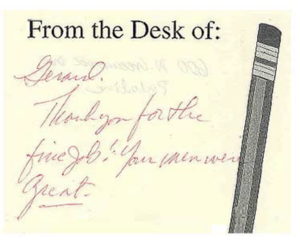 From the Desk of:
Gerard.
Thank you for the
fine job! Your men were
Great.